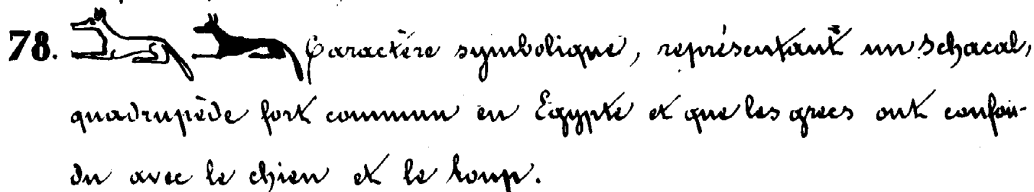 78. Caractère symbolique, représentant un schacal,
quadrupède fort commun en Égypte et que les grecs ont confon-
du avec le chien et le loup.